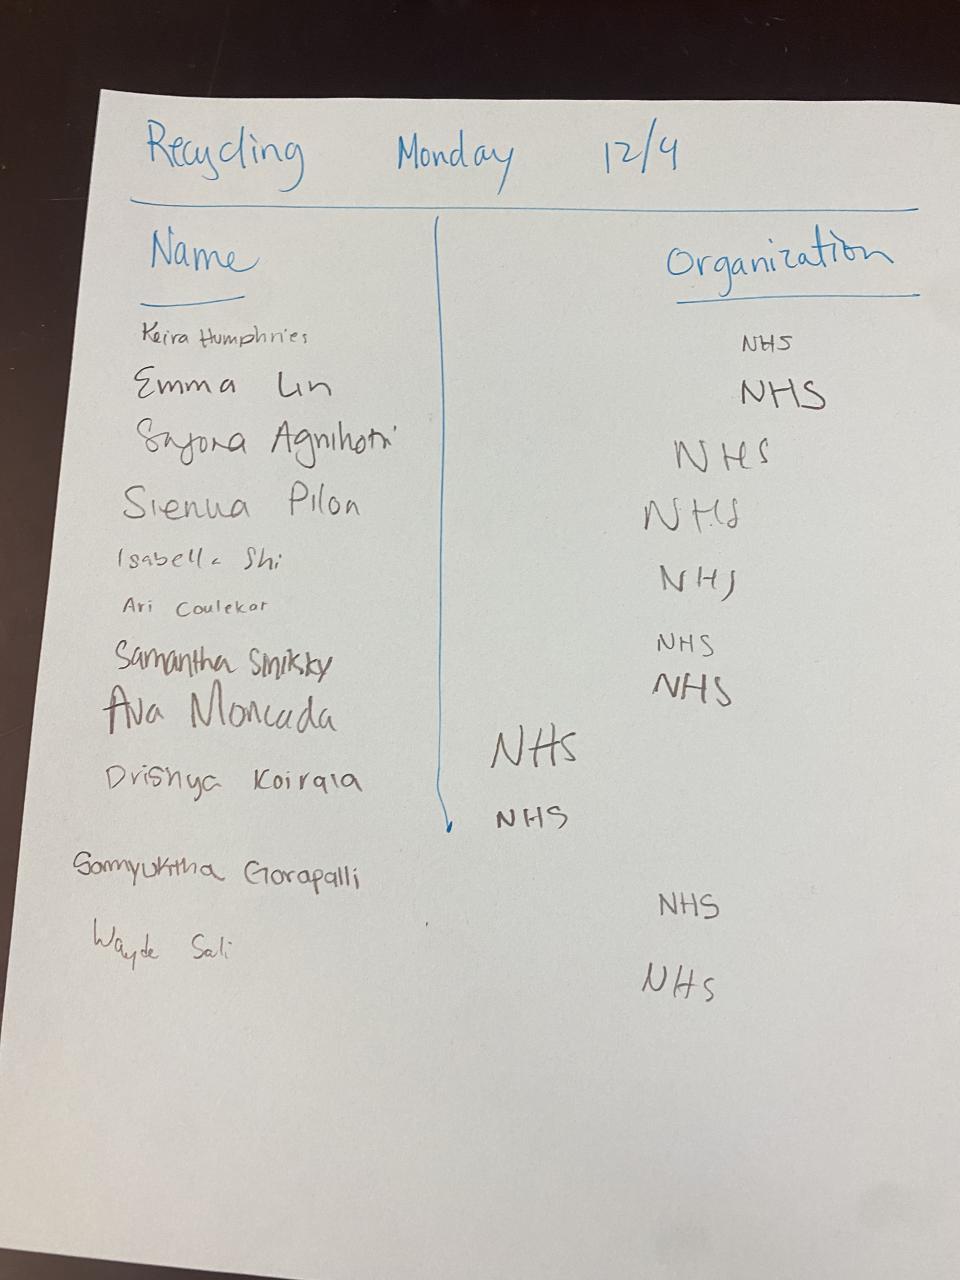 Recycling Monday 12/4
Name Organization
Keira Humphries NHS
Emma Lin NHS
Agnihotri NHS
Sienna Pilon NHS
Isabella Shi NHS
Ari Coulekar NHS
Samantha NHS
Ava Moncada NHS
Drishya Koirala NHS
Samyuktha Gorapalli NHS
Wayde Sali NHS